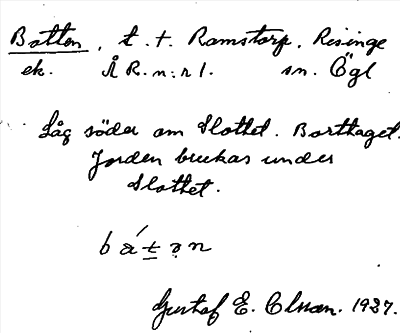 Botten, t. t. Ramstorp, Risinge
ek. Å R. n:r 1. sn. Ögl
Låg söder om Slottet. Borttaget.
Jorden brukas under
Slottet.
bǻtən
Gustaf E. Olsson. 1927.